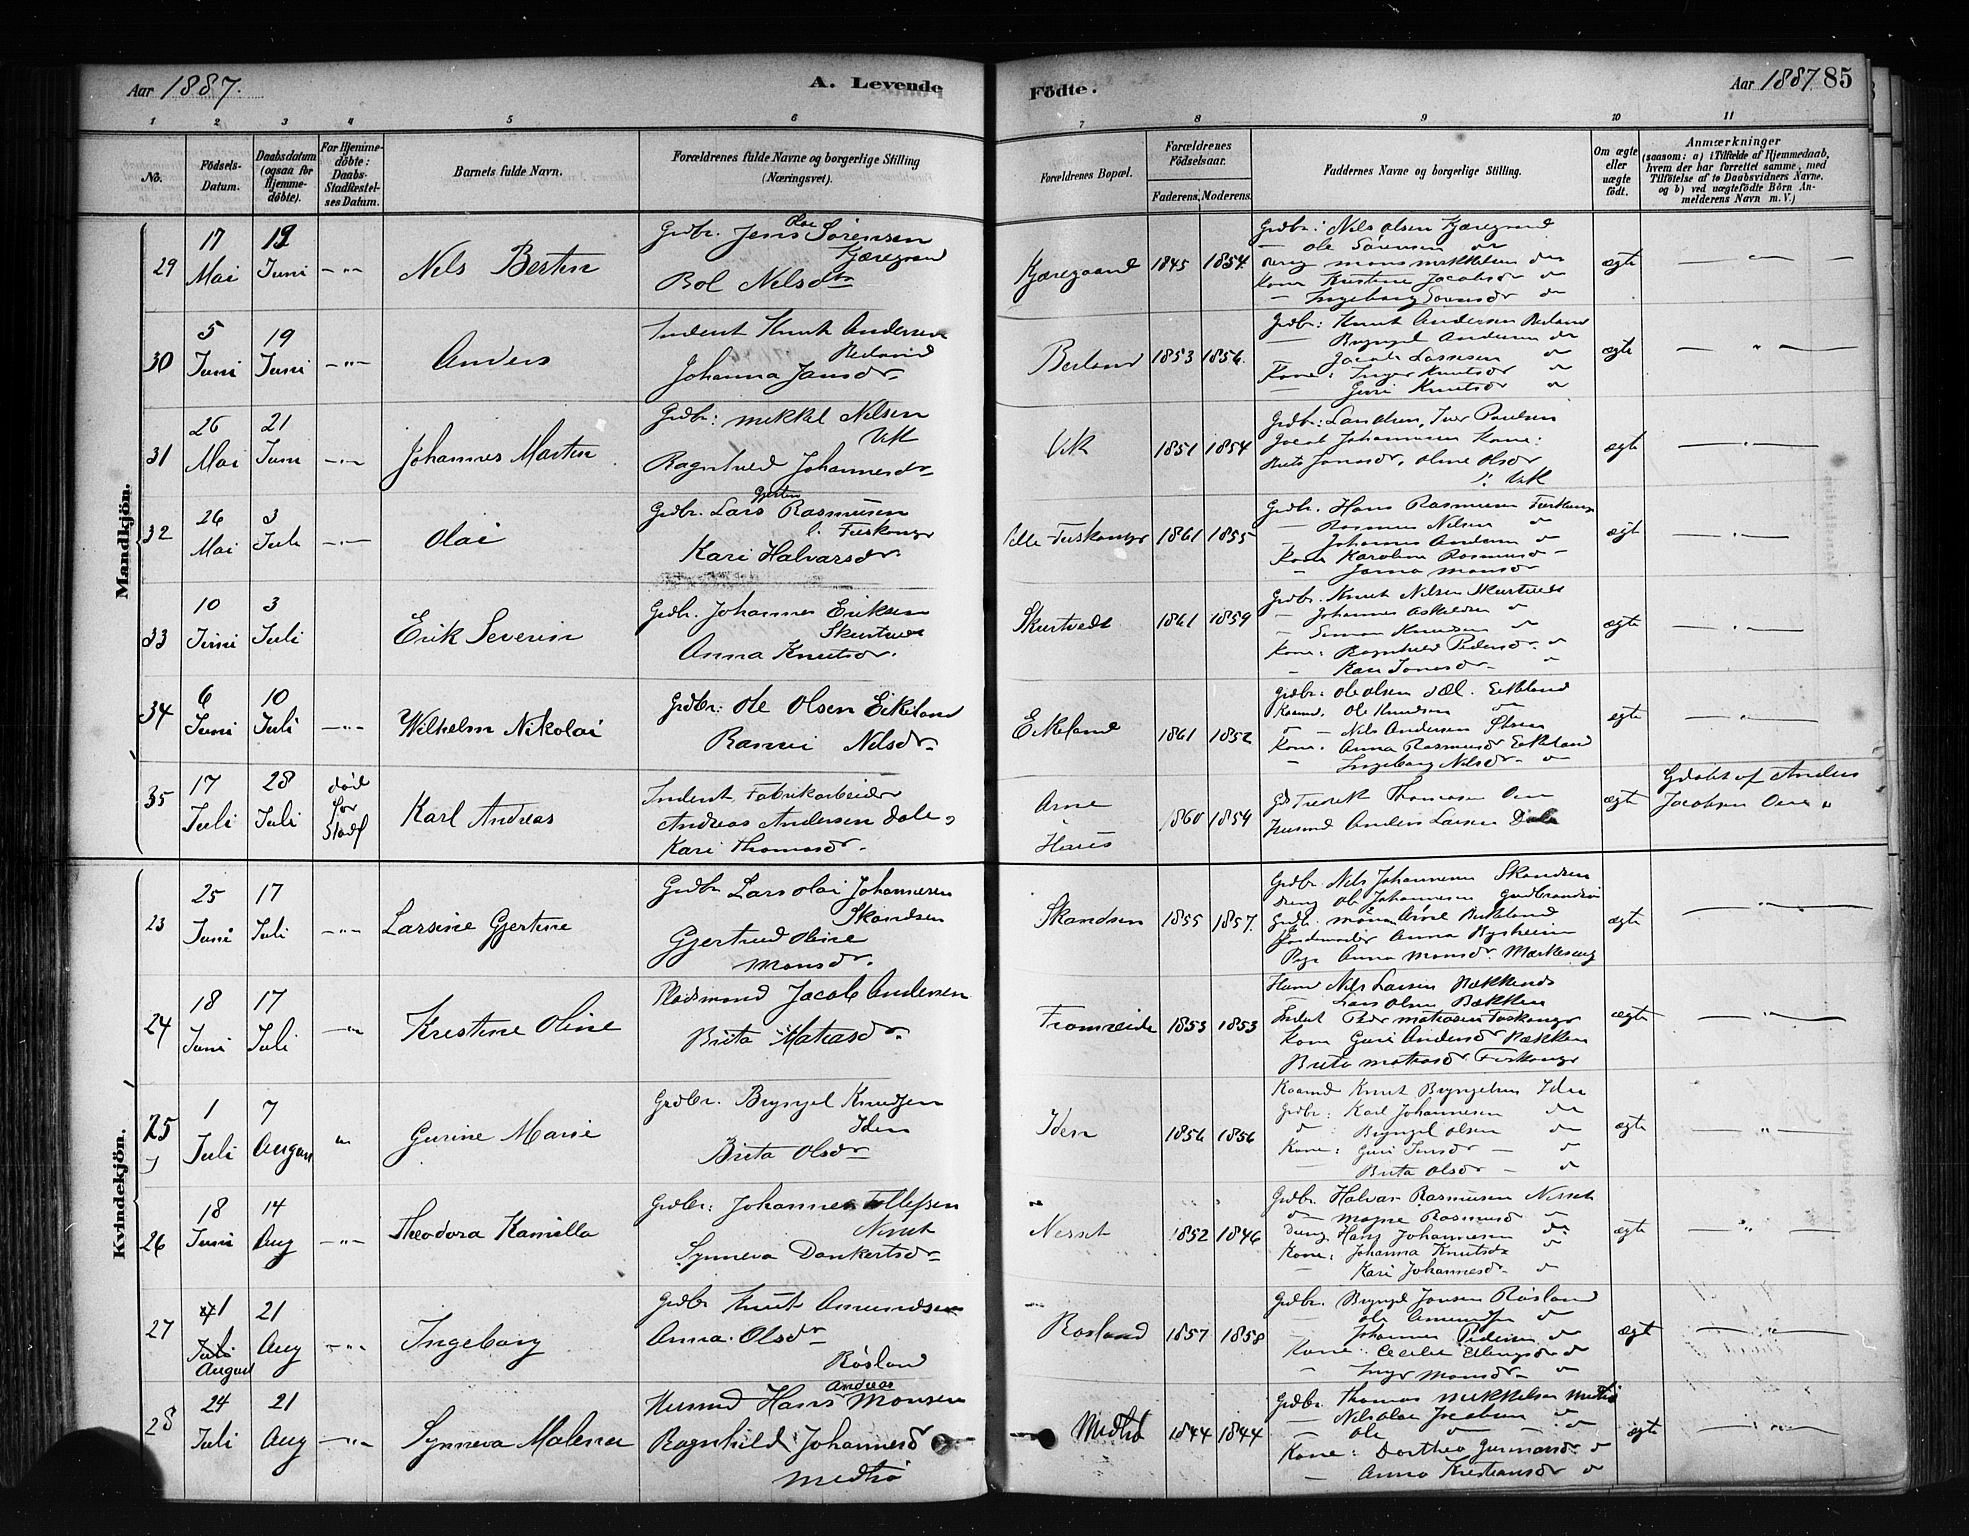 Aar 1887. A. Levende
Födte. Aar 1887 85
1 2 3 4 5 6
7 8 9 10 11
No.
Födsels-Datum.
Daabsdatum (ogsaa for Hjemmedöbte).
For Hjemmedöbte: Daabs-Stadfæstelses Datum.
Barnets fulde Navn.
Forældrenes fulde Navne og borgerlige Stilling (Næringsvei).
Forældrenes Bopæl.
Forældrenes Födselsaar.
Faderens. Moderens.
Faddernes Navne og borgerlige Stilling.
Om ægte eller uægte födt.
Anmærkninger
(saasom: a) i Tilfælde af Hjemmedaab, hvem der har forrettet samme, med Tilföielse af to Daabsvidners Navne, og b) ved uægtefödte Börn Anmelderens Navn m. V.)
Mandkjön.
29 17 Mai 19 Juni Nels Bertin
Grdbr. Jens Olai Sörensen
Kjæregaard
Bol Nelsdr
Kjæregaard 1845 1854
Grdbr: Nils Olsen Kjæregaard
Ole Sörensen do
Dreng Mons Mikkelsen do
Kone Kristine Jacobsdr do
Ingeborg do
ægte
30 5 Juni 19 Juni Anders
Inderst Knut Andersen
Berland
Johanna Jansdr
Berland 1853 1856
Grdbr: Knut Andersen Berland
Bryngel Andersen do
Jacob Larssen do
Kone: Inger Knutsdr do
Guri Knutsdr do
ægte
31 26 Mai 21 Juni Johannes Martin
Grdbr: Mikkel Nilsen
Vik
Ragnhild Johannesdr
Vik 1851 1854
Grdbr: Iver Paulsen
Jacob Johannesen Kone:
Brita Jonasdr, Oline Olsdr
Vik
ægte
32 26 Mai 3 Juli Olai
Grdbr. Lars Gjertin Rasmusen
l. Tuskonge
Kari Halvarsdr
1861 1855
Grdbr. Hans Rasmusen
Rasmus Nilsen do
Johannes Andersen do
Kone Karoline Rasmusd
Monsdr
ægte
33 10 Juni 3 Juli Erik Severin
Grdbr. Johannes Eriksen
Skurtveit
Anna Knutsdr.
Skurtvedt 1861 1859
Grdbr. Knut Nilsen Skurtvedt
Johannes Askildsen do
Simon Knudsen do
Kone: Ragnhild Pedersdr. do
Kari
ægte
34 6 Juni 10 Juli Wilhelm Nikolai
Grdbr: Ole Olsen Eikeland
Rannvei Nilsdr
Eikeland 1861 1852
Grdbr: Ole Olsen Eikeland
Ole Knudsen do
Nils Andersen
Kone: Anna Rasmusdr Eikeland
Ingeborg Nilsdr. do
ægte
35 17 Juli 28 Juli död för Stadf Karl Andreas
Inderst Fabrikarbeider
Andreas Andersen Dale
Kari Thomasdr.
Arne
Haus
1860 1859
Fredrik Thomasen Arne
Husmd Anders Larsen Dale
ægte
Gdöbt af Anders
Jacobsen Arne
Kvindekjön.
23 25 Juni 17 Juli Larsine Gjertine
Grdbr Lars Olai Johannesen
Skandsen
Gjertrud Oline
Monsdr.
Skandsen 1855 1857.
Grdbr Nils Johannesen Skandsen
Dreng Ole Johannesen
Grdbr. Mons Arne Birkeland
Anna Bysheim
Pige Anna Monsdr
ægte
24 18 Juni 17 Juli Kristine Oline
Pladsmand Jacob Andersen
Brita Matiasdr.
Fromreide 1853 1853
Husm Nils Larsen
Lars Olsen Bækken
Inderst Peder Matiasen
Kone Guri Andersdr Bækken
Brita Matiasdr
ægte
25 1 Juli 7 August Gurine Marie
Grdbr. Bryngel Knudsen
Iden
Brita Olsdr
Iden 1856 1856
Kaarmd Knut Bryngelsen Iden
Grdbr: Karl Johannesen do
do Bryngel Olsen do
Kone: Guri Jensdr do
Brita Olsdr do
ægte
26 18 Juni 14 Aug Theodora Kamilla
Grdbr: Johannes Tollefsen
Nesset
Synneva Dankertsdr
Nesset 1852 1846
Grdbr. Halvar Rasmusen Nesset
do Magne Rasmusd do
Dreng Hans Johannesen do
Kone: Johanna Knutsdr do
Kari Johannesdr do
ægte
27 1 Juli August 21 Aug Ingeborg
Grdbr Knut Amundsen
Anna Olsdr
Røsland
Rosland 1857 1858
Grdbr. Bryngel Jonsen Røsland
Ole Amundsen do
Johannes Pedersen do
Kone: Cecilie Ellingsdr do
Inger Monsdr do
ægt
28 24 Juli 21 Aug Synneva Malena
Husmd Hans Andreas Monsen
Ragnhild Johannesd
Medhø
Medhø 1844 1844
Grdbr Thomas Mikkelsen Medhø
Nils Olai Jacobsen do
Ole do
Kone: Dorthea do
Anna Kristiansdr do
ægte